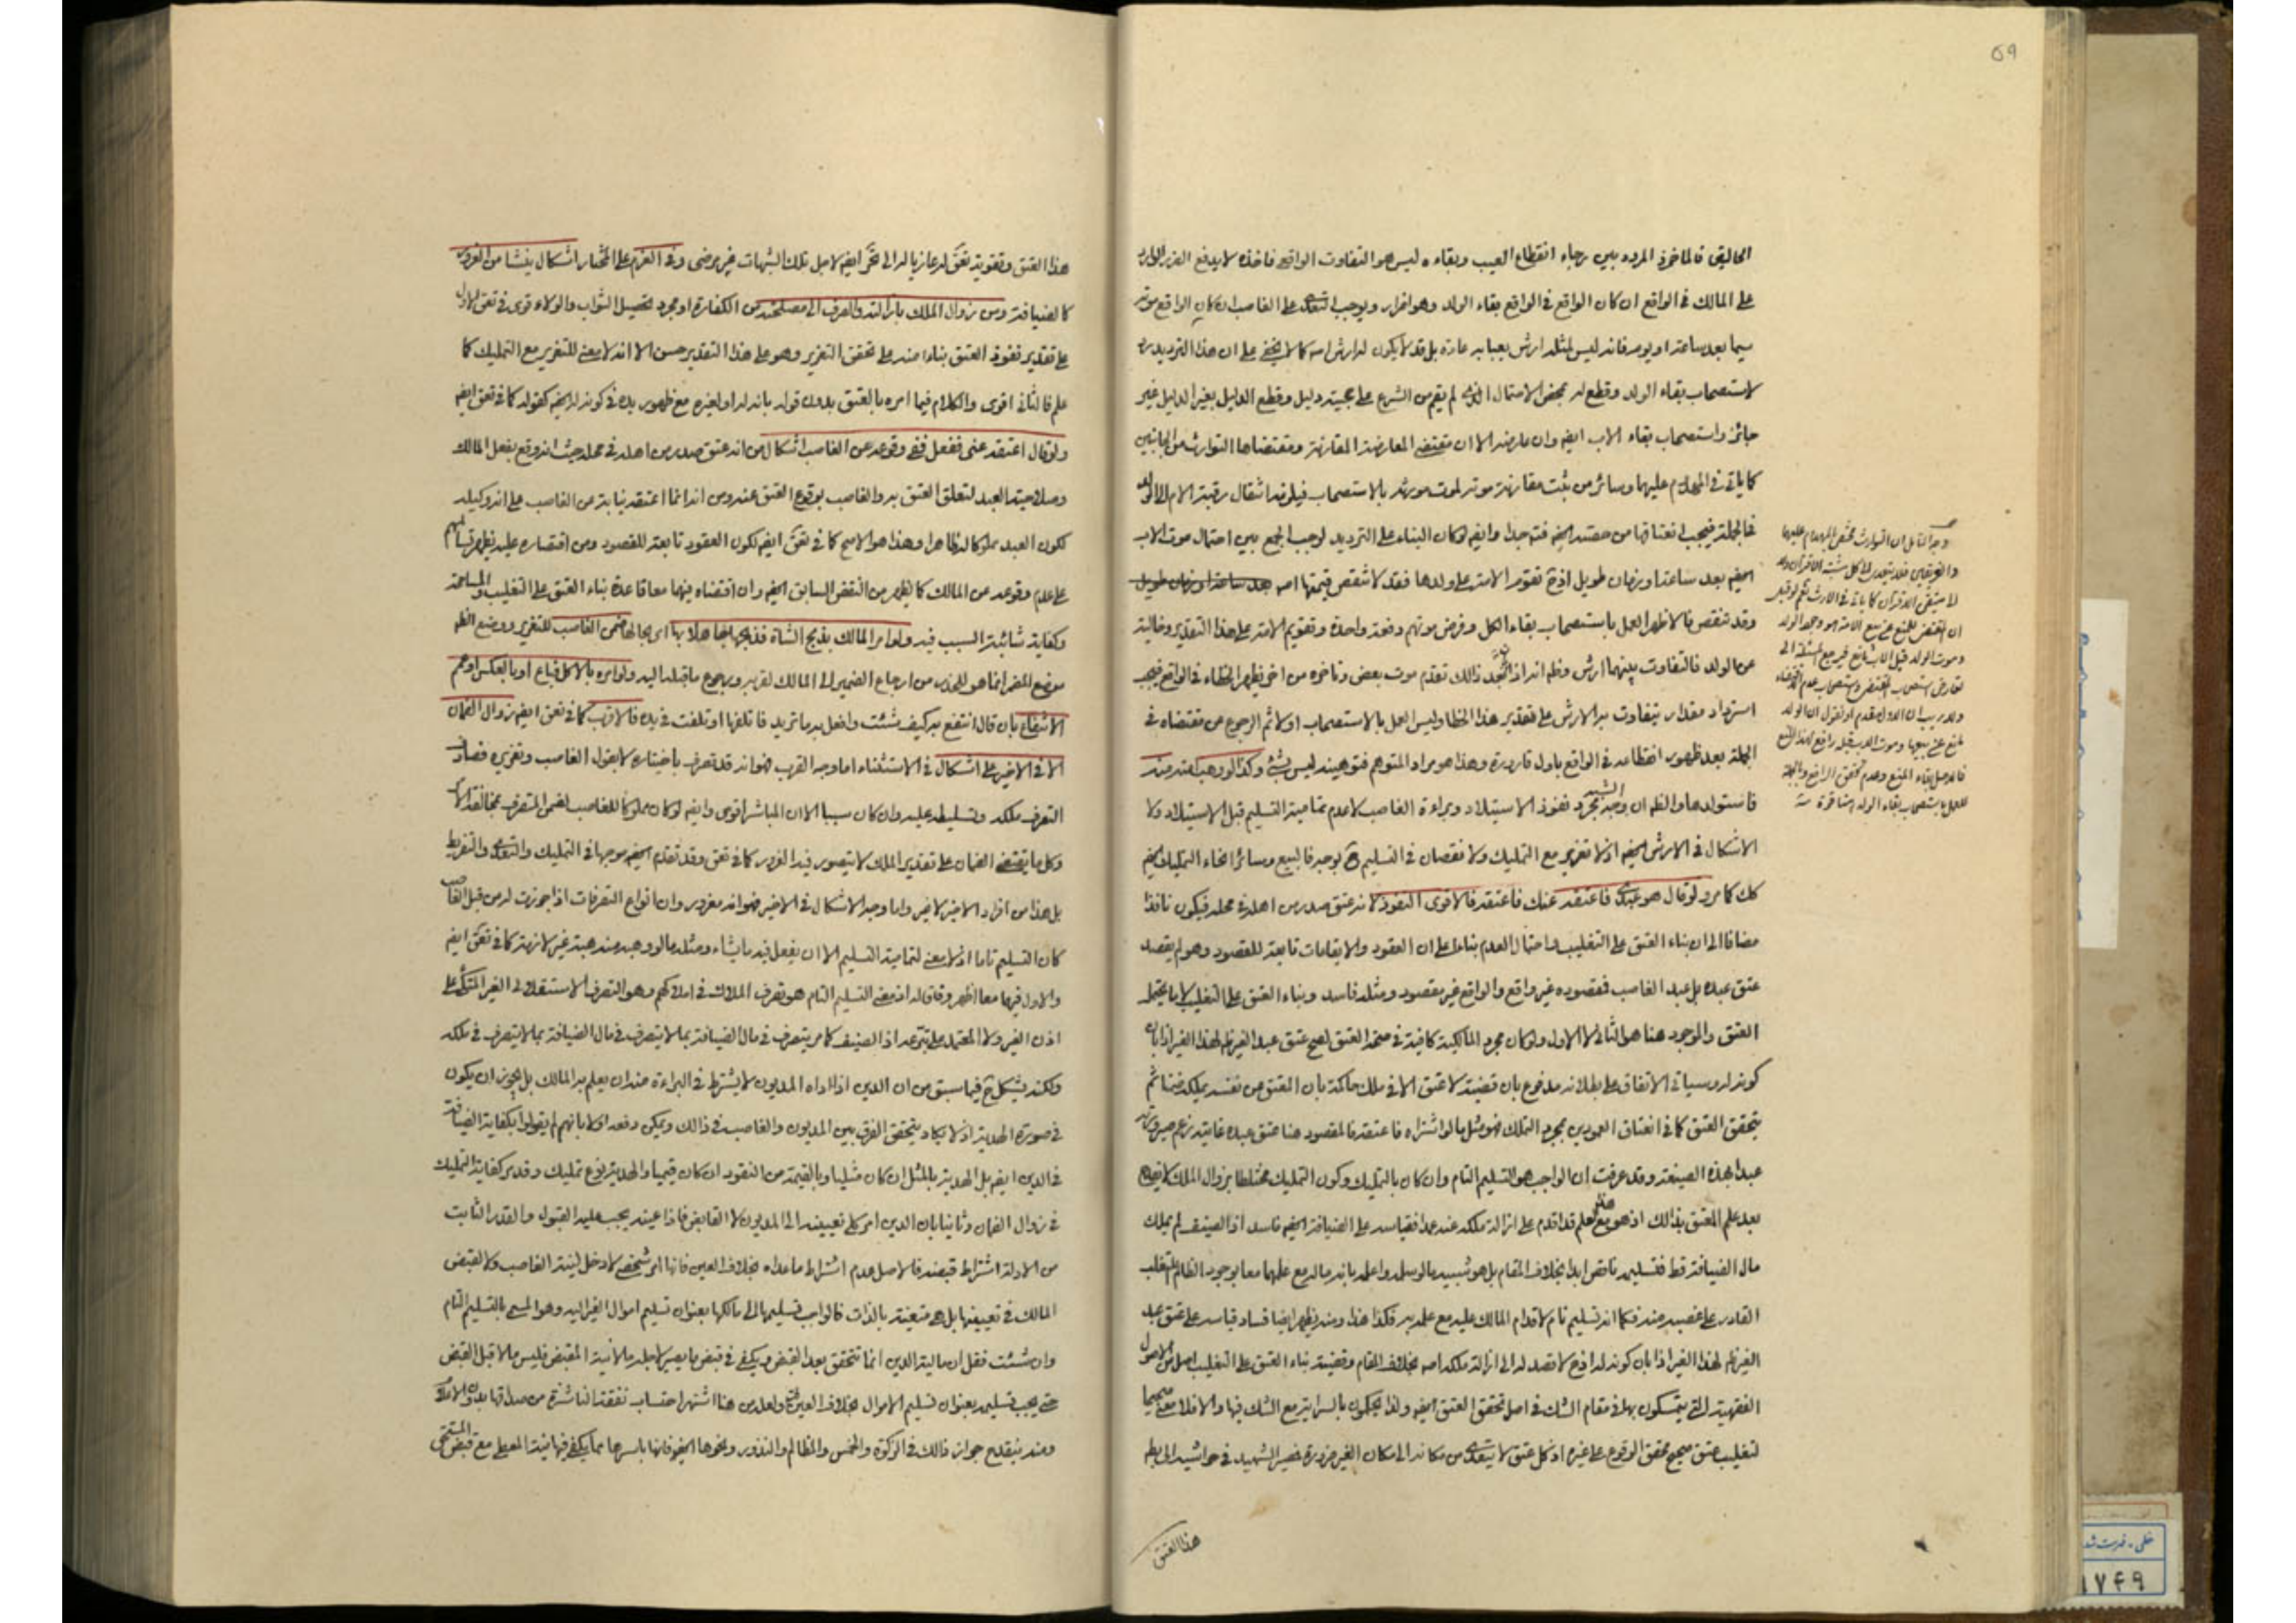 ٥٩
الحاليتي فالماخوذ المردد بين رجاء انقطاع العيب وبقاءه ليس هو التفاوت الواقع فاخذه لا يدفع الضرر الوارد
على المالك في الواقع ان كان الواقع في الواقع بقاء الولد وهو اضرار ويوجب التعدي على الغاصب ان كان الواقع موته
سيما بعد ساعة او يوم فانه ليس لمثله ارش يعبا به عادة بل قد لا يكون له ارش اصه كما لا يخفى على ان هذا الترديد
لاستصحاب بقاء الولد وقطع له بمحض الاحتمال الذي لم يقم من الشرع على حجيته دليل وقطع الدليل بغير الدليل غير
جائز واستصحاب بقاء الاب ايضا وان عارضه الا ان مقتضى المعارضة المقارنة ومقتضاها التوارث من الجانبين
كما ياتي في المهدوم عليهم وسائر من يثبت مقارنة موته لموت مورثه بالاستصحاب فيلزمه انتقال رقبة الام الى الولد
فالجملة فيجب انعتاقها من حصته ايضا فته جدا وايضا لو كان البناء على الترديد لوجب الجمع بين احتمال موت الاب
ايضا بعد ساعة او زمان طويل اذ ح تقوم الامة على ولدها فقد لا تنقص قيمتها اصه
وقد تنقص فالاظهر العمل باستصحاب بقاء الكل وفرض موتهم دفعة واحدة وتقويم الامة على هذا التقدير وخالية
عن الولد فالتفاوت بينهما ارش وظم انه اذا ذلك تقدم موت بعض وتاخره من اخر يظهر الخطاء في الواقع فيجب
استرداد مقدار يتفاوت به الارش على تقدير هذا الخطا وليس العمل بالاستصحاب اولا ثم الرجوع عن مقتضاه في
الجملة بعد ظهور انقطاعه في الواقع باول قارورة وهذا هو مراد المتوهم فتوهينه ليس بشئ وكذا لو وهبه منه
فاستولدها والظم ان وجه مجرد نفوذ الاستيلاد وبراءة الغاصب لا عدم تمامية التسليم قبل الاستيلاد ولا
الاشكال في الارش ايضا اذ لا تغرير مع التمليك ولا نقصان في التسليم ح بوجه فالبيع وسائر انحاء التمليك ايضا
كك كما مر ولو قال هو عبدي فاعتقه عنك فاعتقه فالاقوى النفوذ لانه عتق صدر من اهله في محله فيكون نافذا
مضافا الى ان بناء العتق على التغليب واحتمال العدم بناءا على ان العقود والايقاعات تابعة للقصود وهو لم يقصد
عتق عبده بل عبد الغاصب فمقصوده غير واقع والواقع غير مقصود ومثله فاسد وبناء العتق على التغليب لا ما يحتمل
العتق والموجود هنا هو الثاني لا الاول ولو كان مجرد المالكية كافية في صحة العتق لصح عتق عبد الغير ظم لهذا الغير اذا بان
كونه له وسياتي الاتفاق على بطلانه مدفوع بان قضية لا عتق الا في ملك حاكمة بان العتق عن نفسه يملكه ضمنا ثم
يتحقق العتق كما في انعتاق العمودين بمجرد التملك فهو مثل ما لو اشتراه فاعتقه فالمقصود هنا عتق عبده غايته زعم صيرورته
عبدا بهذه الصيغة وقد عرفت ان الواجب هو التسليم التام وان كان بالتمليك وكون التمليك مختلطا بزوال الملك لا يضره
بعد علم المعتق بذلك اذ هو مع علم قد اقدم على ازالة ملكه عنه عمدا فقياسه على الضيافة ايضا فاسد اذ الضيف لم يملك
مال الضيافة قط فتسليمه ناقص ابدا بخلاف المقام بل هو شبيه بما لو سلمه واعلمه بانه ماله مع علمهما معا بوجود الظالم المتغلب
القادر على غصبه منه فكما انه تسليم تام لاقدام المالك عليه مع علمه به فكذا هذا ومنه يظهر ايضا فساد قياسه على عتق عبد
الغير ظم لهذا الغير اذا بان كونه له اذ ح لا قصد له الى ازالة ملكه اصه بخلاف المقام وقضية بناء العتق على التغليب اصل من الاصول
الفقهية التي يتمسكون بها في مقام الشك في اصل تحقق العتق ايضا ولذا يحكمون بالسراية مع الشك فيها والا فلا معنى
لتغليب عتق صحيح محقق الوقوع على غيره اذ كل عتق لا يتعدى من مكانه الى مكان الغير ضرورة فصير الشهيد في حواشيه الى بطه
هذا العتق
وجه التامل ان التوارث مختص بالمهدوم عليهم
والغرقى فلا يتعدى الى كل مشتبه الاقتران ولا
الى متيقن الاقتران كما ياتي في الارث نعم لو قيل
ان المقتضى للمنع عن بيع الامة هو وجود الولد
وموت الولد قبل الاب مانع فيرجع المسئلة الى
تعارض استصحاب المقتضى واستصحاب عدم
ولا ريب ان الاول مقدم او نقول ان الولد
مانع عن بيعها وموت الاب قبل رافع لهذا المنع
فالاصل بقاء المنع وعدم تحقق الرافع وبالجملة
للعمل باستصحاب بقاء الولد
هذا العتق وتقوية تعق له عازيا له الى تحر ايضا لاجل تلك الشبهات غير مرضى وفي الغرم على المختار اشكال ينشا من الغرور
كالضيافة ومن زوال الملك بازالته والصرف الى مصلحته من الكفارة او مجرد تحصيل الثواب والولاء قوى في تعق الاول
على تقدير نفوذ العتق بناءا منه على تحقق التغرير وهو على هذا التقدير حسن الا انه لا معنى للتغرير مع التمليك كما
علم فالثاني اقوى والكلام فيما امره بالعتق بدون قوله بانه له او لغيره مع ظهور يده في كونه له ايضا كقوله كما في تعق ايضا
ولو قال اعتقه عني ففعل ففي وقوعه عن الغاصب اشكال من انه عتق صدر من اهله في محله حيث انه وقع بفعل المالك
وصلاحية العبد لتعلق العتق به والغاصب بوقوع العتق عنه ومن انه انما اعتقه نيابة عن الغاصب على انه وكيله
لكون العبد مملوكا له ظاهرا وهذا هو الاصح كما في تعق ايضا لكون العقود تابعة للقصود ومن اقتصاره عليه يظهر
على عدم وقوعه عن المالك كما يظهر من النقض السابق ايضا وان اقتضاه فيهما معا قاعدة بناء العتق على التغليب والمسامحة
وكفاية شائبة السبب فيه ولو امر المالك بذبح الشاة فذبحها جاهلا بها اي بحالها ضمن الغاصب للتغرير ووضع الظم
موضع المضمر انما هو للحذر من ارجاع الضمير الى المالك لقربه ورجوع ما قبله اليه ولو امره بالاكل فباع او بالعكس او عمم
الانتفاع بان قال انتفع به كيف شئت وافعل به ما تريد فاتلفها او تلفت في يده فالاقرب كما في تعق ايضا زوال الضمان
الا في الاخير على اشكال في الاستثناء اما وجه القرب فهو انه قد تصرف باختياره لا بقول الغاصب وتغريره
التصرف ملكه وتسليطه عليه وان كان سببا الا ان المباشر اقوى وايضا لو كان مملوكا للغاصب لضمن المتصرف بمخالفته
وكل ما يقتضي الضمان على تقدير الملك لا يتصور فيه الغرور كما في تعق وقد تقدم ايضا موجها في التمليك والتعدي والتفريط
بل هذا من افراد الاخير لا غير واما وجه الاشكال في الاخير فهو انه مغرور وان انواع التصرفات اذا جوزت له من قبل الغاصب
كان التسليم تاما اذ لا معنى لتمامية التسليم الا ان يفعل فيه ما يشاء ومثله ما لو وهبه منه هبة غير لازمة كما في تعق ايضا
والاول فيهما معا اظهر وفاقا له اذ معنى التسليم التام هو تصرف الملاك في املاكهم وهو التصرف الاستقلالي الغير المتكئ على
اذن الغير ولا المعتمد على تبرعه اذ الضيف كما مر يتصرف في مال الضيافة بما لا يتصرف في ملكه
ولكنه يشكل ح فيما سبق من ان الدين اذا اداه المديون لا يشترط في البراءة منه ان يعلم به المالك بل يجوز ان يكون
في صورة الهدية اذ لا يكاد يتحقق الفرق بين المديون والغاصب في ذلك ويمكن دفعه اولا بانهم لم يقولوا بكفاية الضيافة
في الدين ايضا بل الهدية بالمثل ان كان مثليا وبالقيمة من النقود ان كان قيميا والهدية نوع تمليك وقد مر كفاية التمليك
في زوال الضمان وثانيا بان الدين امر كلي تعيينه الى المديون لا القابض فاذا عينه يجب عليه القبول والقدر الثابت
من الادلة اشتراط قبضه فالاصل عدم اشتراط ما عداه بخلاف العين فانها امر شخصي لا دخل لنية الغاصب ولا لقبض
المالك في تعيينها بل هي متعينة بالذات فالواجب تسليمها الى مالكها بعنوان تسليم اموال الغير اليه وهو المسمى بالتسليم التام
وان شئت فقل ان مالية الدين انما تتحقق بعد القبض ويكفي في قبض ما يصير لاجله مالا نية المقبض فليس مالا قبل القبض
حتى يجب تسليمه بعنوان تسليم الاموال بخلاف العين ولعله من هنا اشتهر احتساب نفقة الناشزة من صداقها بدون الاعلام
ومنه ينقدح جواز ذلك في الزكوة والخمس والمظالم والنذور ونحوها ايضا فانها باسرها مما يكفي فيها نية المعطي مع قبض المستحق
خطي - فهرست شده
١٧٤٩